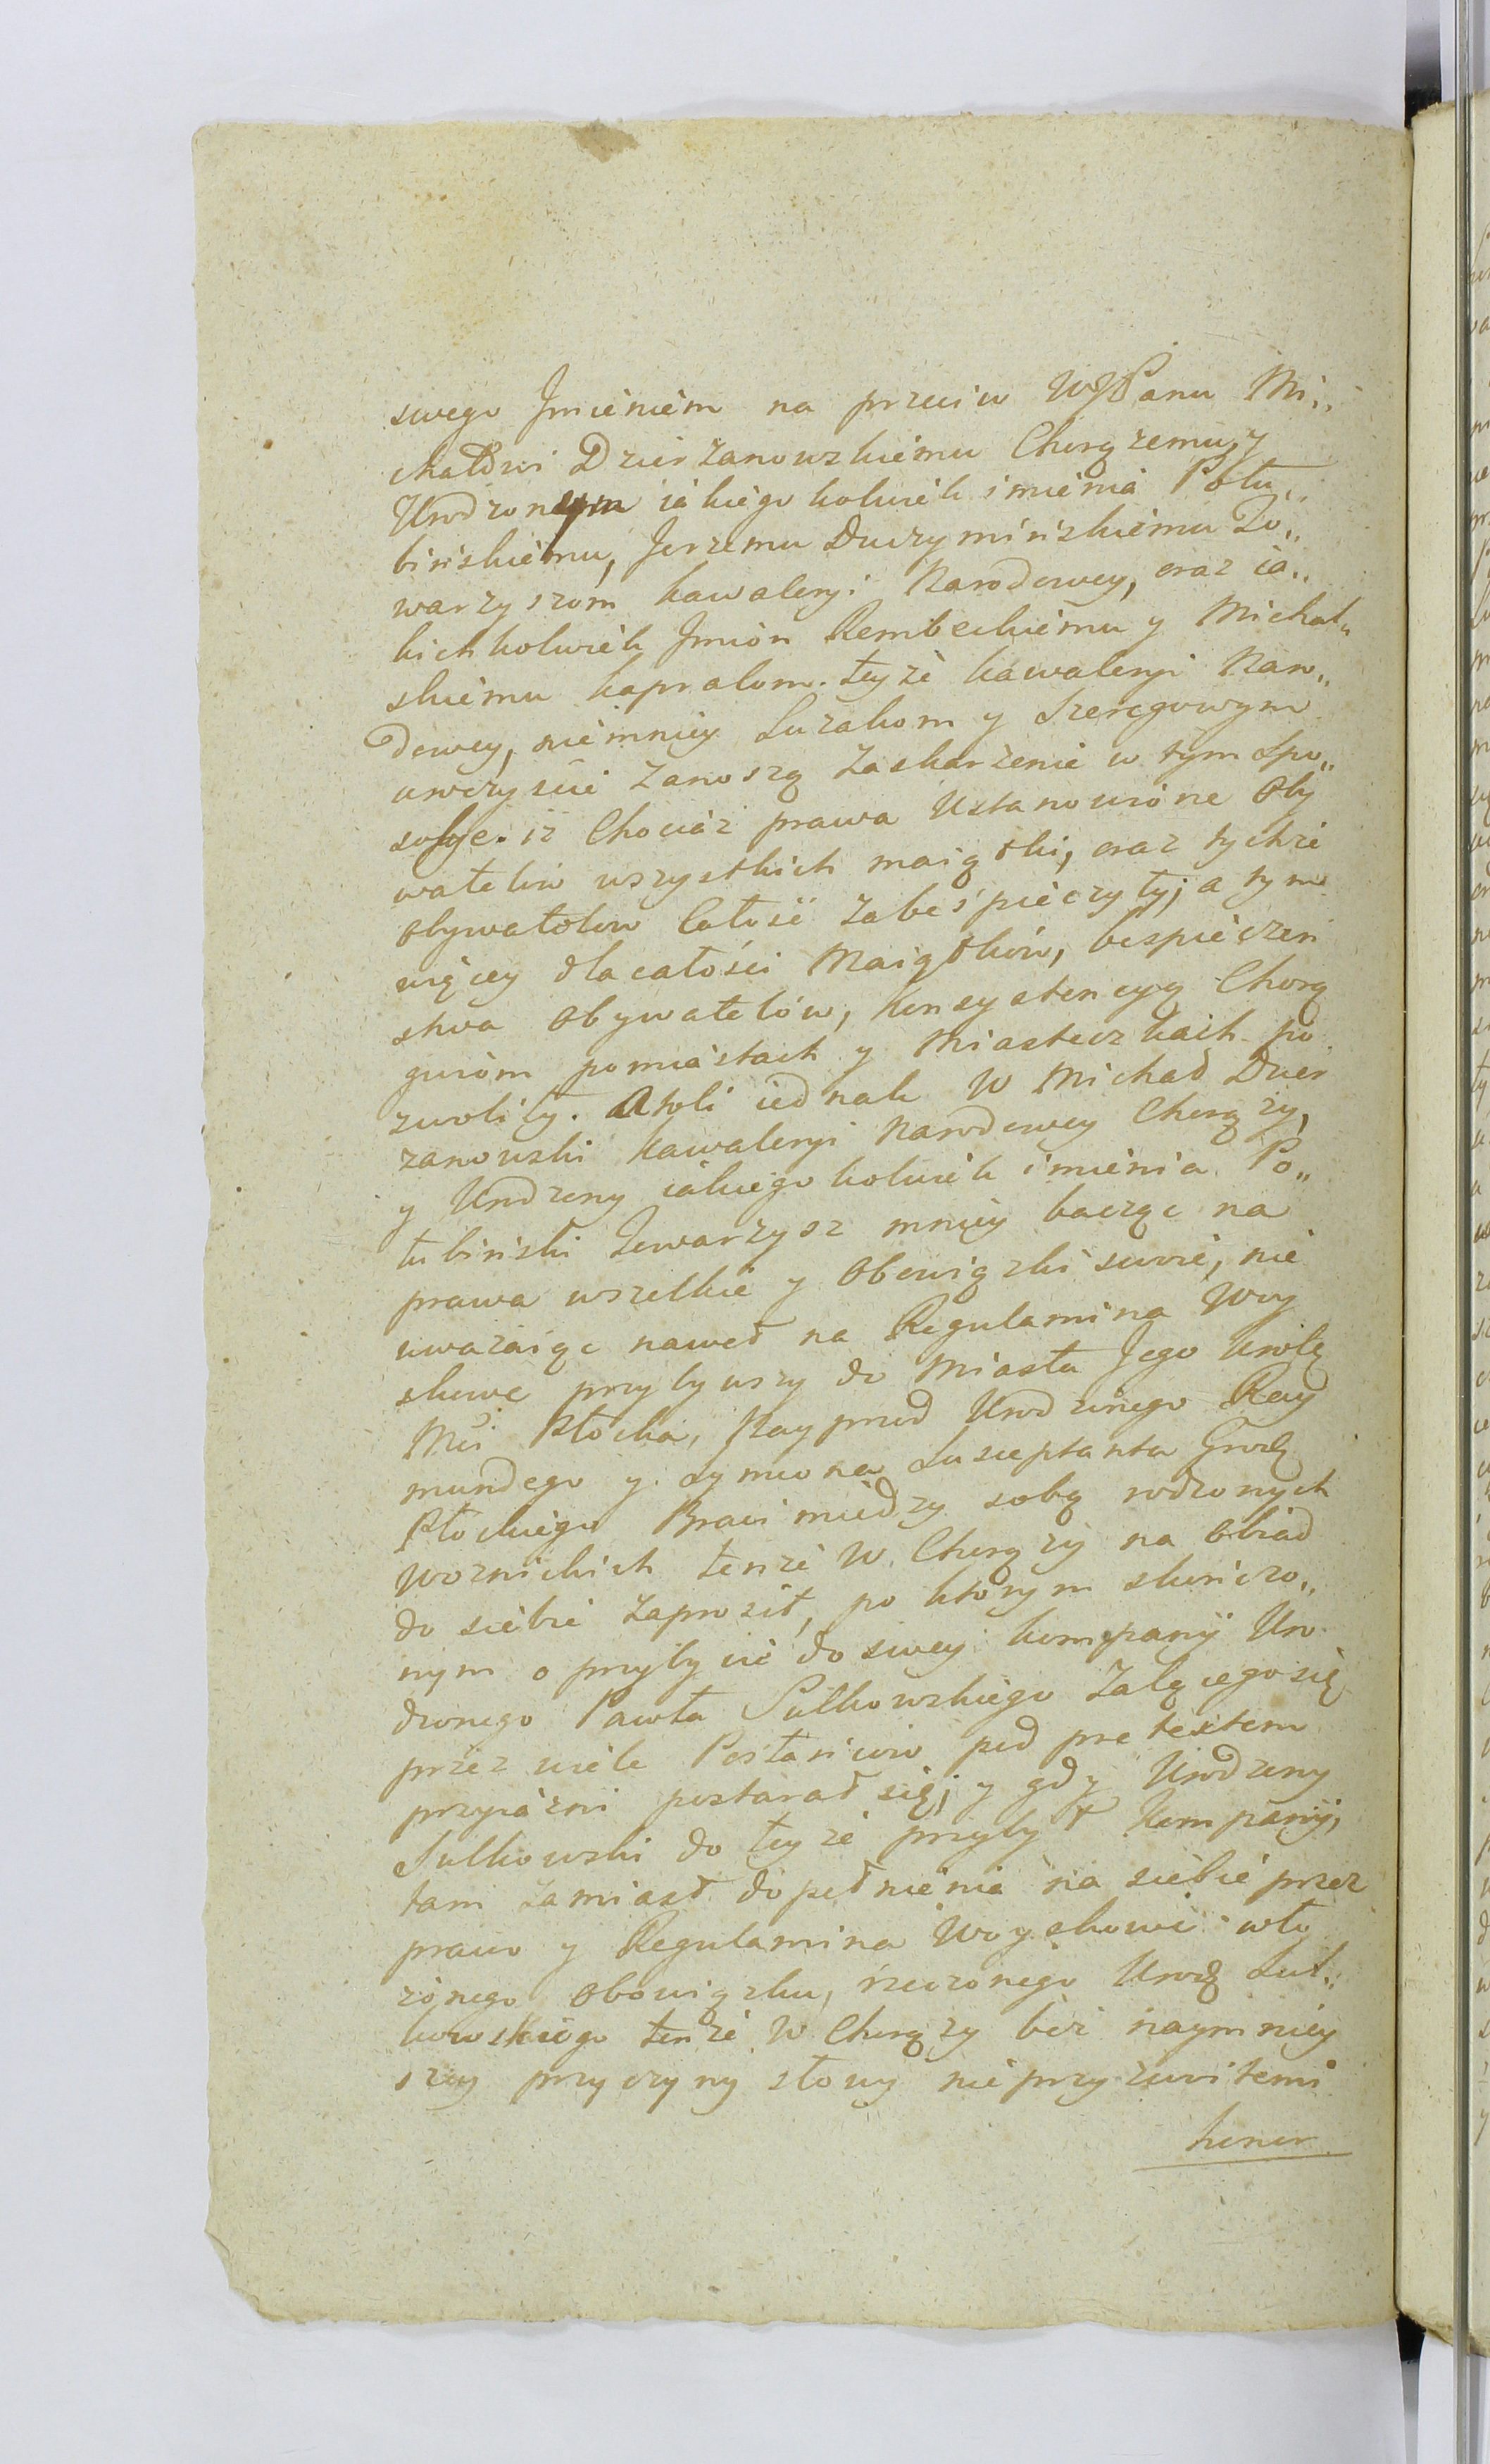 swego Jmieniem na przeciw WJPanu Mi„
chałowi Dzierzanowskiemu Chorązemu, y
Urodzonym iakiego kolwiek imienia Połu„
bińskiemu, Jerzemu Duczymińskiemu To„
warzyszom kawaleryi Narodowey, oraz ia„
kich kolwiek Jmion Rembeckiemu y Michal„
skiemu kapralom teyże kawaleryi Naro„
dowey, niemniey Luzakom y Szeregowym
uroczyscie zanoszą zaskarzenie w tym spo„
sobye. iż Chociaż prawa Ustanowione Oby
watelów wszystkich maiątki, oraz tychże
obywatelow Całość zabeśpieczyły; a tym
więcey dla całości Maiątków, bespieczeń
stwa Obywatelów, konsystencyą Chorą
gwióm po miastach y Miasteczkach po
zwoliły. Atoli iednak W Michał Dzier
zanowski kawaleryi Narodowey Chorąży,
y Urodzony iakiego kolwiek imienia Po„
łubiński Towarzysz mniey bacząc na
prawa wszelkie y Obowiązki swoie, nie
uwazaiąc nawet na Regulamina Woy
skowe przybywszy do Miasta Jego Krolę
Mći Płocka, Nayprzod Urodzonego Ray
mundego y Symona Susceptanta Grodz
Płockiego Braci miedzy sobą rodzonych
Woznickich tenże W. Chorąży na Obiad
do siebie zaprosił, po którym skończo„
nym o przybycie do swey kompanij Uro
dzonego Pawła Sulkowskiego
przez wiele Posłańców pod pretextem
przyiaźni postarał się; y gdy Urodzony
Sulkowski do teyże przybył kompanij,
tam zamiast dopełnienia na siebie przez
prawo y Regulamina Woyskowe wło
żonego obowiązku, rzeczonego Urodz Sul„
kowskiego tenże W. Chorąży bez naymniey
szey przyczyny słowy nieprzyzwoitemi
honor